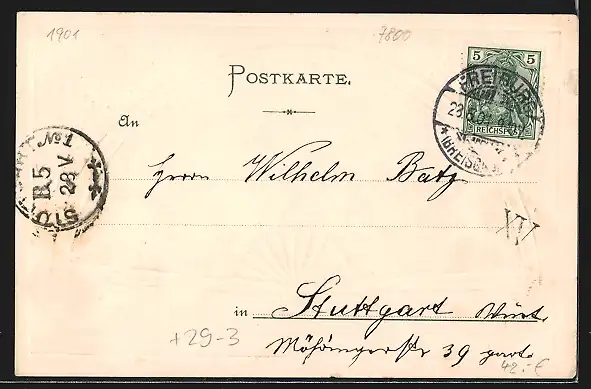 1901
7800
POSTKARTE.
5 5
REICHSPOST
FREIBURG
* (BREISGAU)
An
No 1
B5
28 V
STU
Herrn Wilhelm Batz
XV
in Stuttgart Württ.
Möhringerstr 39 part.
+29-3
42.-€